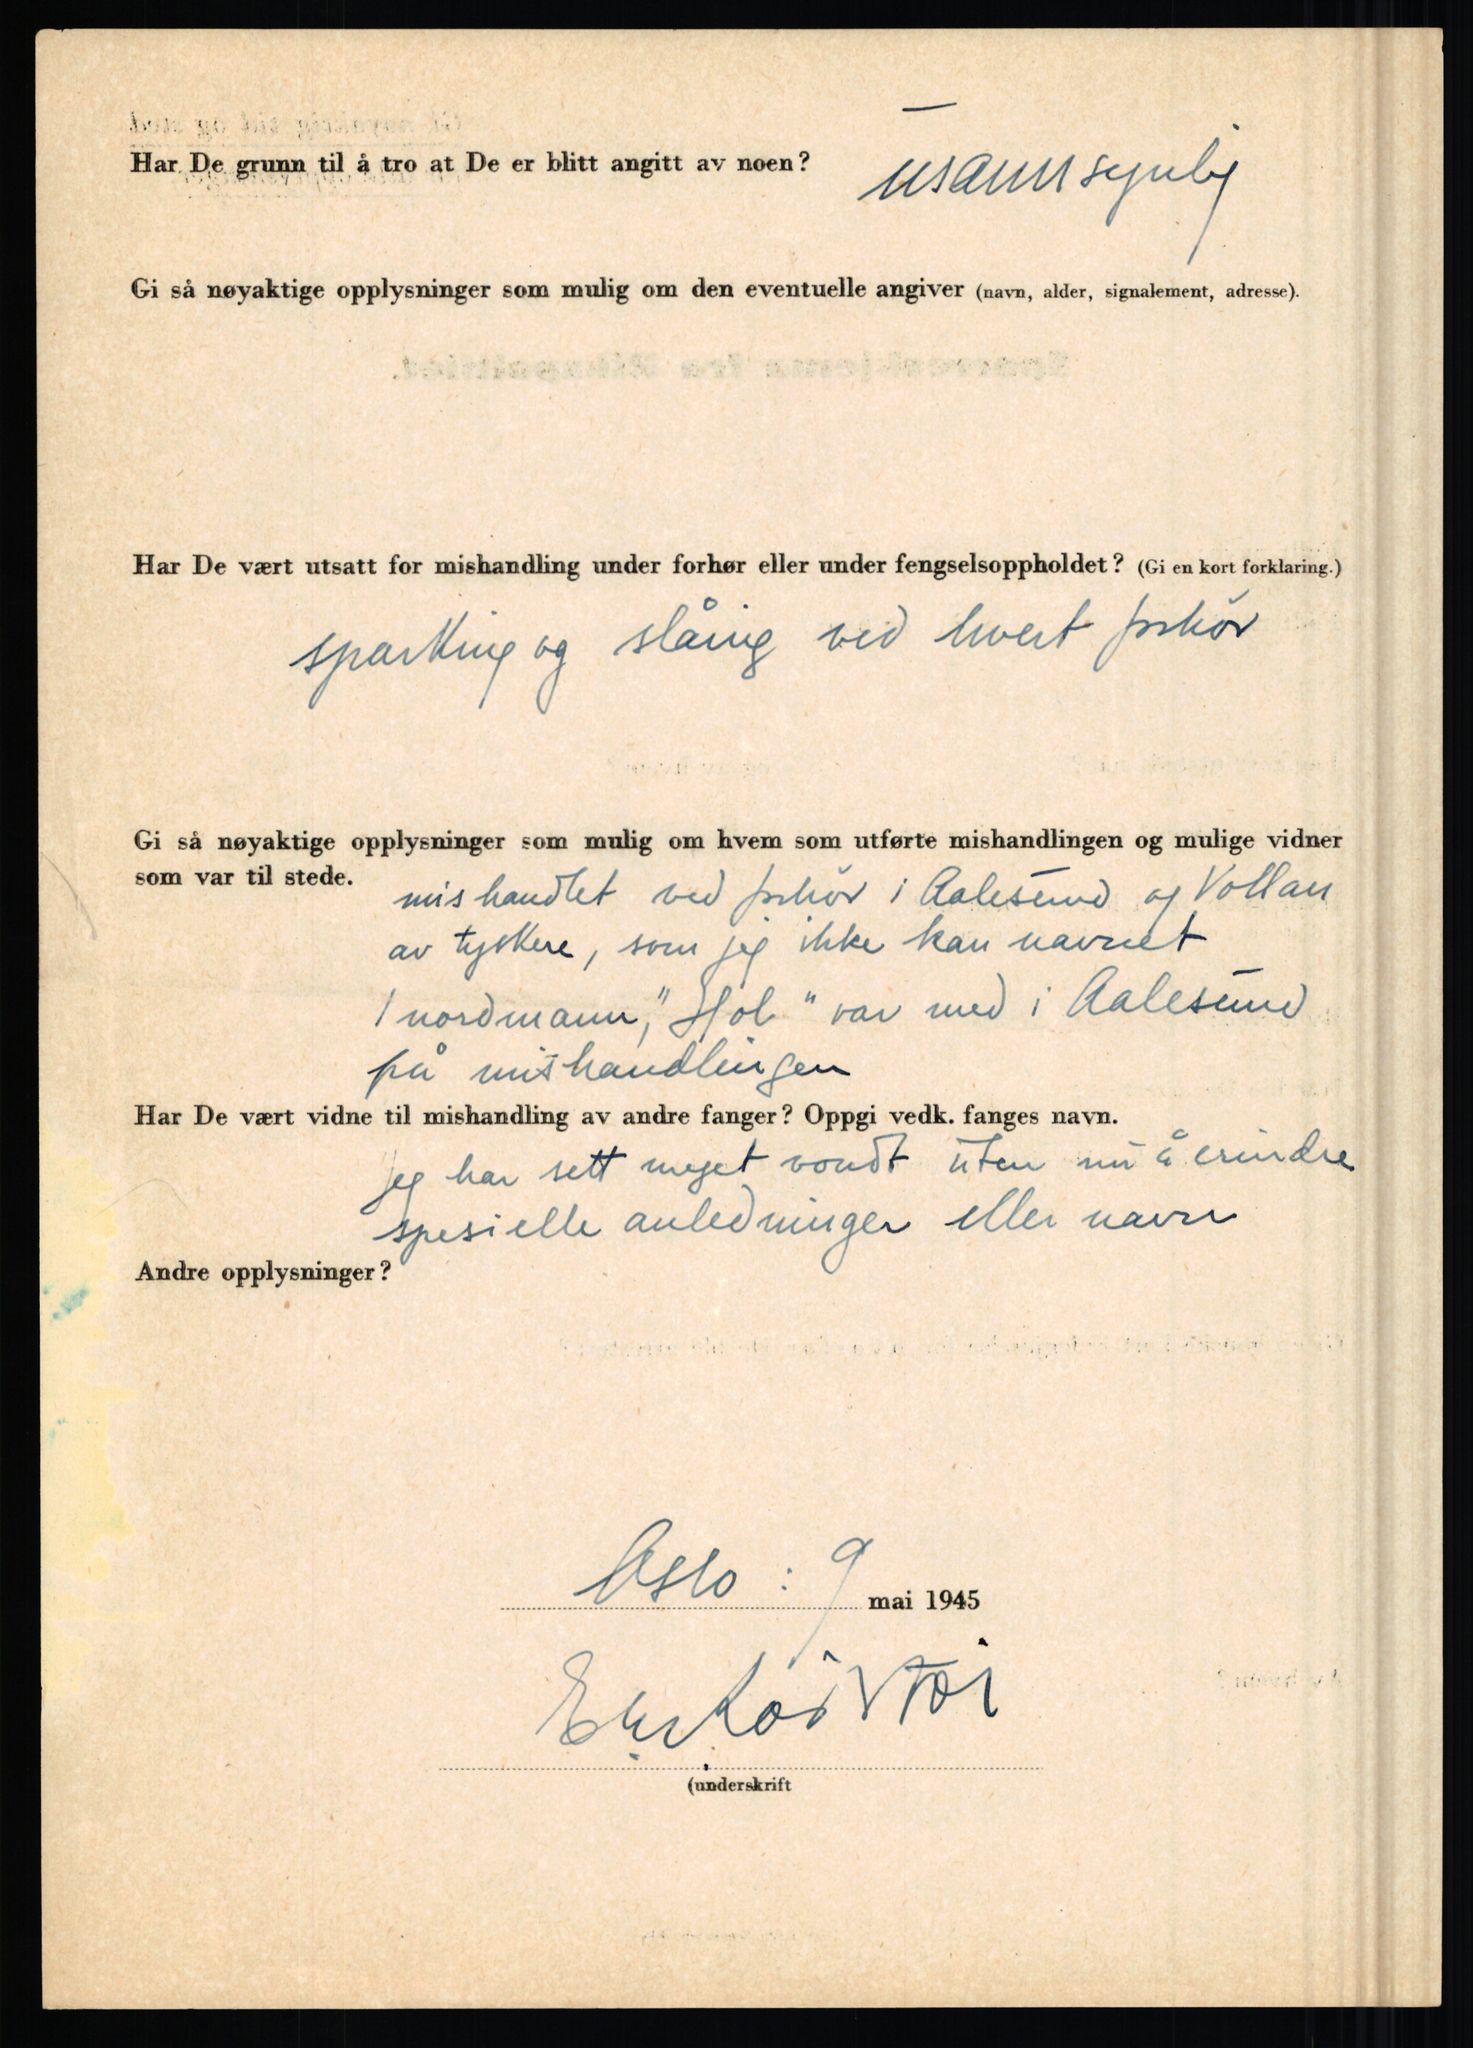 Har De grunn til å tro at De er blitt angitt av noen?
usannsynlig
Gi så nøyaktige opplysninger som mulig om den eventuelle angiver (navn, alder, signalement, adresse).
Har De vært utsatt for mishandling under forhør eller under fengselsoppholdet? (Gi en kort forklaring.)
sparking og slåing ved hvert forhör
Gi så nøyaktige opplysninger som mulig om hvem som utførte mishandlingen og mulige vidner
som var til stede.
mishandlet ved forhör i Aalesund og Vollan
av tyskere, som jeg ikke kan navnet
1 nordmann, "Hol" var med i Aalesund
på mishandlingen
Har De vært vidne til mishandling av andre fanger? Oppgi vedk. fanges navn.
jeg har sett meget vondt uten nu å erindre
spesielle anledninger eller navn
Andre opplysninger?
Oslo : 9 mai 1945
(underskrift